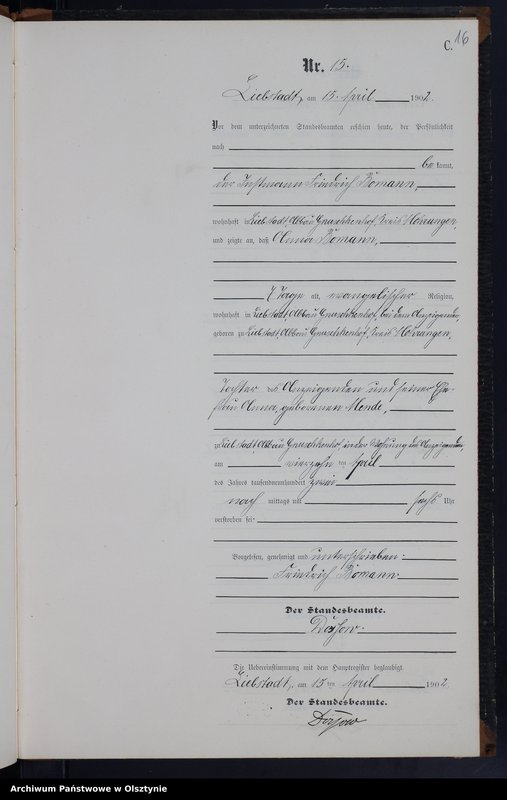 C. 16
Nr. 15.
Liebstadt, am 15. April 1902.
Vor dem unterzeichneten Standesbeamten erschien heute, der Persönlichkeit
nach
be kannt,
der Instmann Friedrich Bömann,
wohnhaft in Liebstadt, Abbau Gnaschkenhof, Kreis Mohrungen,
und zeigte an, daß Anna Bömann,
7 Tage alt, evangelischer Religion,
wohnhaft in Liebstadt Abbau Gnaschkenhof, bei dem Anzeigenden,
geboren zu Liebstadt, Abbau Gnaschkenhof, Kreis Mohrungen,
Tochter des Anzeigenden und seiner Ehe-
frau Anna, geborenen Mende,
zu Liebstadt, Abbau Gnaschkenhof, in der Wohnung des Anzeigenden,
am vierzehn ten April
des Jahres tausendneunhundert zwei
nach mittags um sechs Uhr
verstorben sei.
Vorgelesen, genehmigt und unterschrieben:
Friedrich Bömann.
Der Standesbeamte.
Die Uebereinstimmung mit dem Hauptregister beglaubigt.
Liebstadt, am 15 ten April 1902.
Der Standesbeamte.
Archiwum Państwowe w Olsztynie